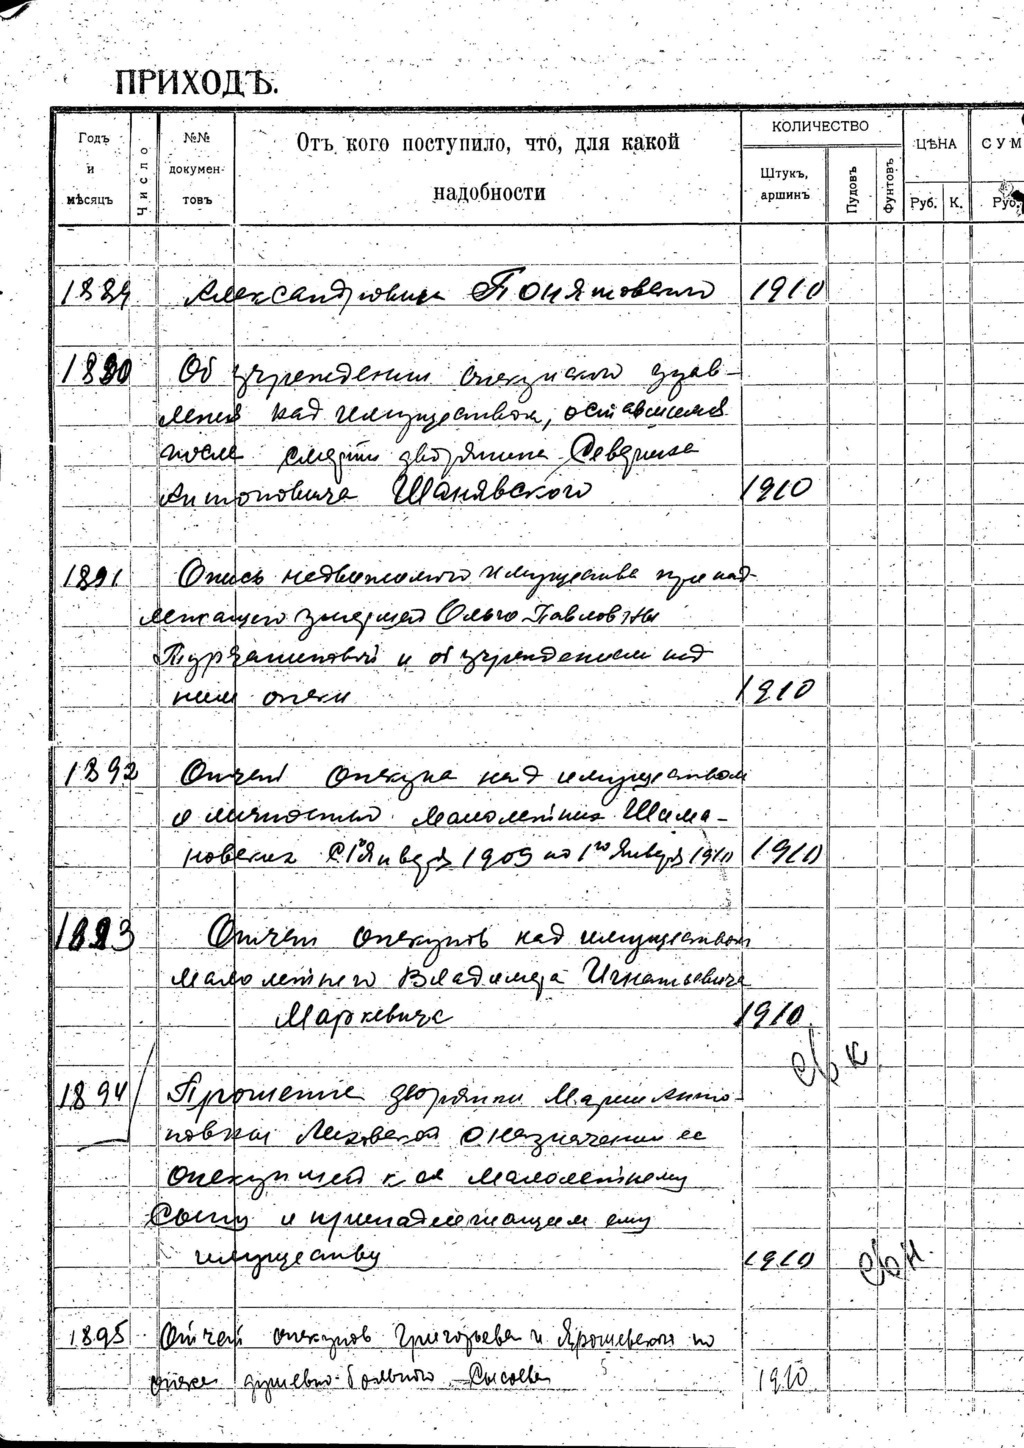 ПРИХОДЪ.
Годъ и мѣсяцъ
Число
№№ документовъ
Отъ кого поступило, что, для какой
надобности
КОЛИЧЕСТВО
Штукъ, аршинъ
Пудовъ
Фунтовъ
ЦѢНА
Руб. К.
СУМ
Руб.
1889 Александровича Понятовского 1910
1890 Об учреждении опекунского управ-
ления над имуществом, оставшемся
после смерти дворянина Северина
Антоновича Шанявского 1910
1891 Опись недвижимого имущества принад-
лежащего умершей Ольго Павловны
и об учреждением над
ним опеки 1910
1892 Отчет опекуна над имуществом
и личностью малолетних Шима-
новских С 1го Января 1909 по 1го Января 1910 1910
1893 Отчет опекунов над имуществом
малолетнего Владимира Игнатьевича
Маркевича 1910
1894 Прошение дворянки Марии Анто-
новны о назначении ее
опекуншей к ея малолетнему
Сыну и принадлежащем ему
имуществу 1910
1895 Отчет опекунов Григорьева и Ярошевского по
опеке душевно-больного Сысоева 1910